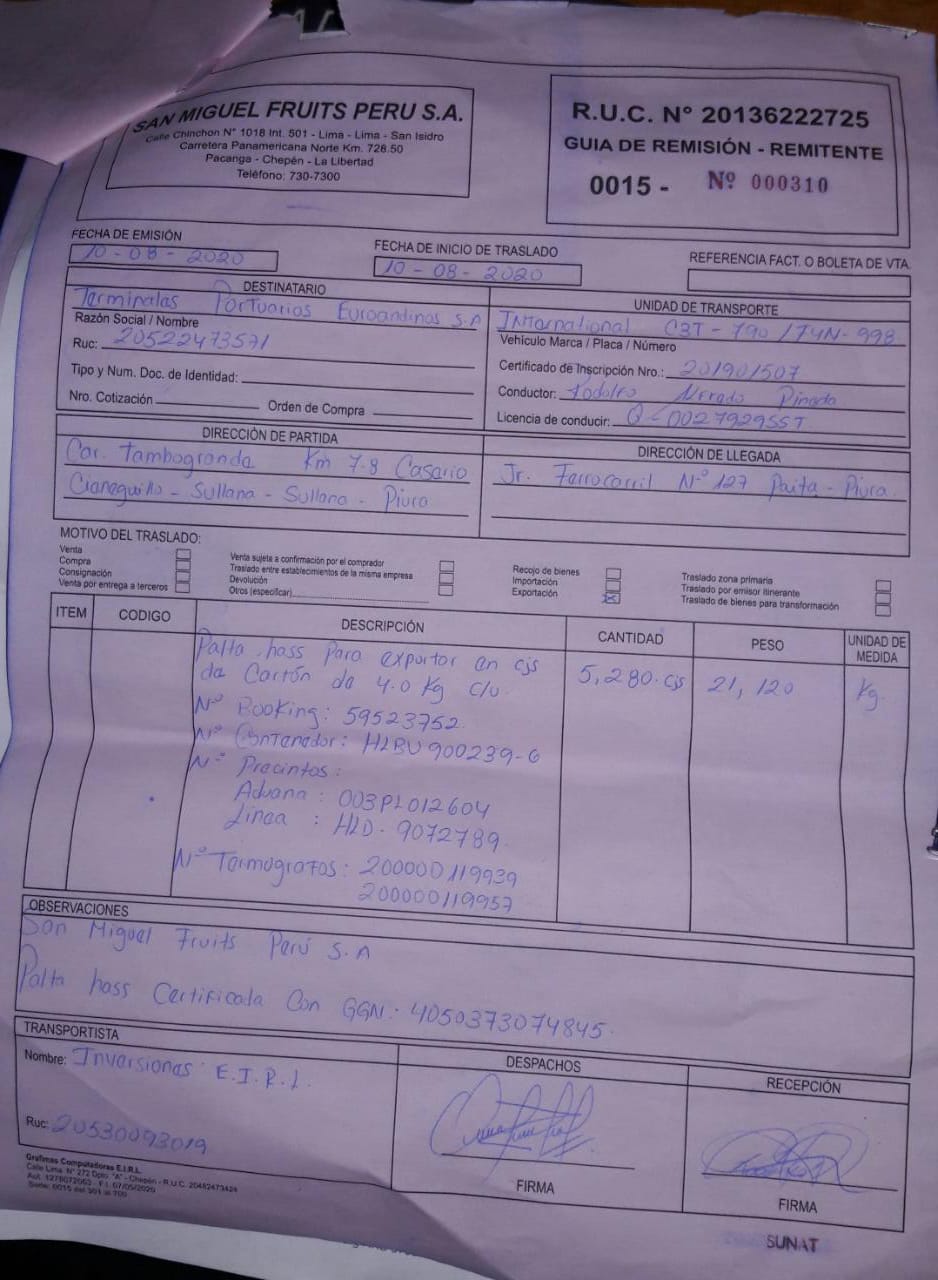 SAN MIGUEL FRUITS PERU S.A.
Calle Chinchon N° 1018 Int. 501 - Lima - Lima - San Isidro
Carretera Panamericana Norte Km. 728.50
Pacanga - Chepén - La Libertad
Teléfono: 730-7300
R.U.C. N° 20136222725
GUIA DE REMISIÓN - REMITENTE
0015 - Nº 000310
FECHA DE EMISIÓN
10-08-2020
FECHA DE INICIO DE TRASLADO
10-08-2020
REFERENCIA FACT. O BOLETA DE VTA.
DESTINATARIO
Terminales Portuarios Euroandinos S.A
Razón Social / Nombre
Ruc: 20522473571
Tipo y Num. Doc. de Identidad:
Nro. Cotización Orden de Compra
UNIDAD DE TRANSPORTE
International C3T-790 / T4N-998
Vehículo Marca / Placa / Número
Certificado de Inscripción Nro.: 201901507
Conductor: Rodolfo Pineda
Licencia de conducir: Q-0027929557
DIRECCIÓN DE PARTIDA
Car. Tambogrande Km 7.8 Caserio
Cieneguillo - Sullana - Sullana - Piura
DIRECCIÓN DE LLEGADA
Jr. Ferrocarril Nº 127 Paita - Piura
MOTIVO DEL TRASLADO:
Venta
Compra
Consignación
Venta por entrega a terceros
Venta sujeta a confirmación por el comprador
Traslado entre establecimientos de la misma empresa
Devolución
Otros (especificar)
Recojo de bienes
Importación
Exportación X
Traslado zona primaria
Traslado por emisor itinerante
Traslado de bienes para transformación
ITEM CODIGO DESCRIPCIÓN CANTIDAD PESO UNIDAD DE MEDIDA
Palta hass Para exportar en cjs 5,280.cjs 21,120 Kg.
de Cartón de 4.0 Kg c/u.
Nº Booking: 59523752
Nº Contenedor: HLBU 900239-6
Nº Precintos:
Aduana : 003PL012604
Linea : HLD-9072789
Nº Termografos: 200000119939
200000119957
OBSERVACIONES
San Miguel Fruits Perú S.A
Palta hass Certificada Con GGN: 4050373074845.
TRANSPORTISTA
Nombre: Inversiones E.I.R.L.
Ruc: 20530093019
DESPACHOS
FIRMA
RECEPCIÓN
FIRMA
Grafimas Computadoras E.I.R.L.
Calle Lima N° 272 Dpto. "A" - Chepén - R.U.C. 20482473424
Serie: 0015 del 301 al 700
SUNAT